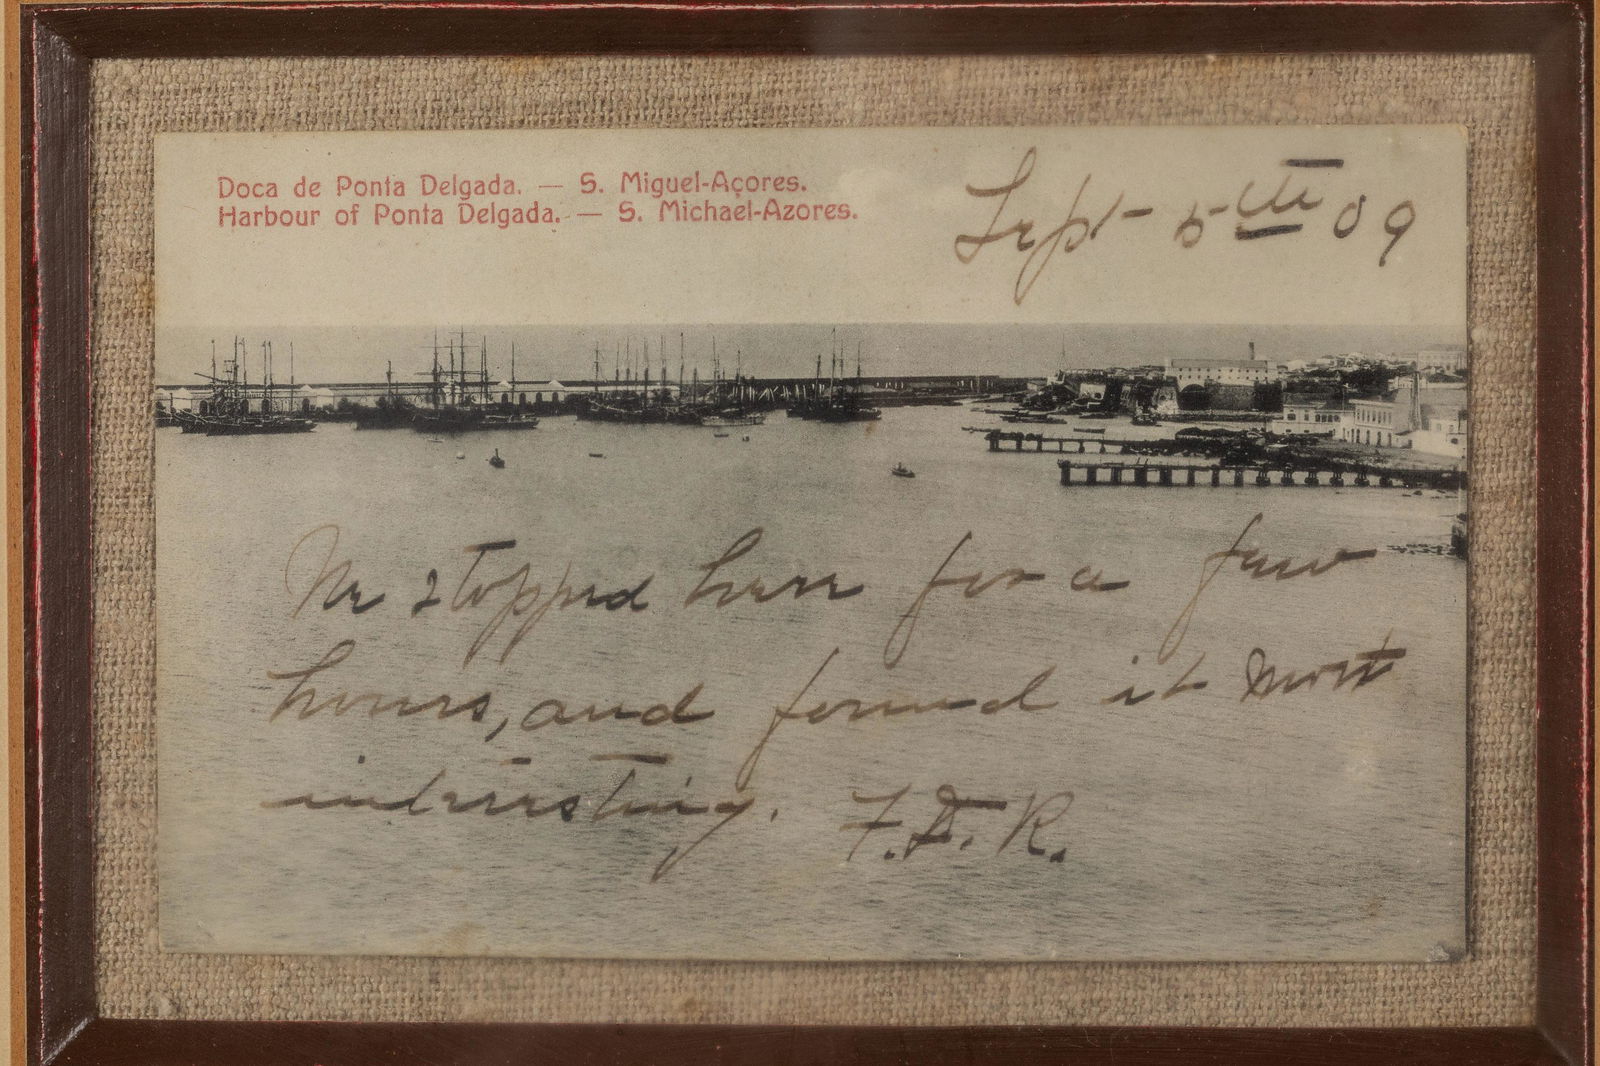 Doca de Ponta Delgada. — S. Miguel-Açores.
Harbour of Ponta Delgada. — S. Michael-Azores.
Sept - 5th 09
We stopped here for a few
hours, and found it most
interesting. F.D.R.